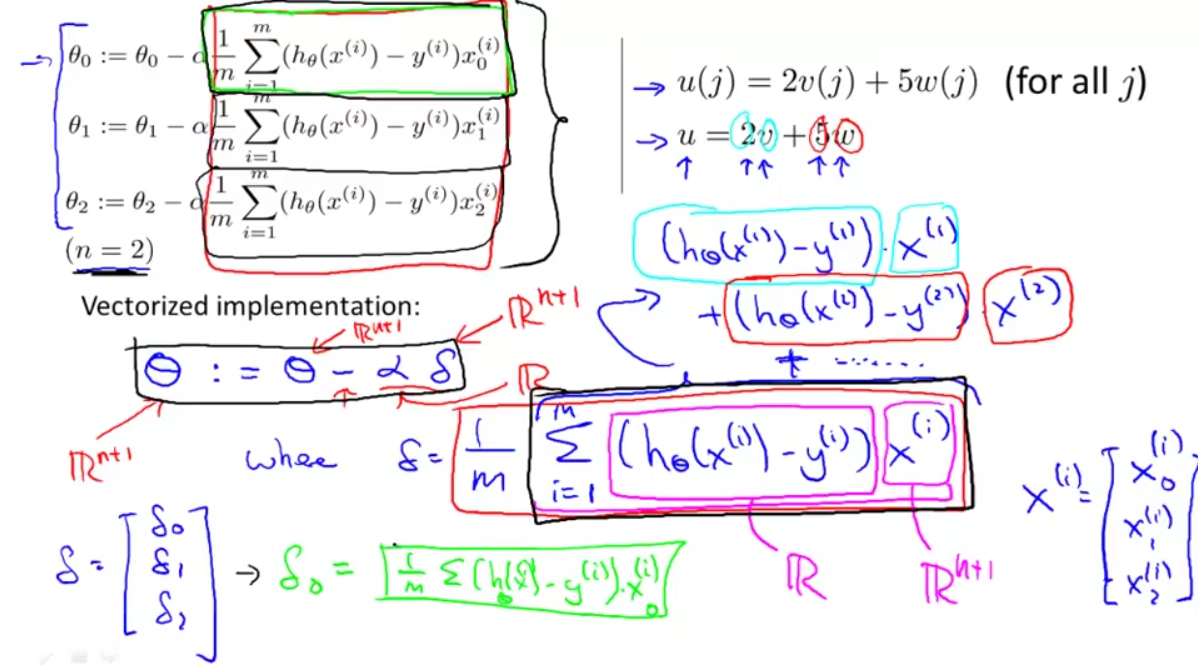 θ₀ := θ₀ − α 1/m ∑_{i=1}^{m} (h_θ(x^{(i)}) − y^{(i)})x₀^{(i)}
θ₁ := θ₁ − α 1/m ∑_{i=1}^{m} (h_θ(x^{(i)}) − y^{(i)})x₁^{(i)}
θ₂ := θ₂ − α 1/m ∑_{i=1}^{m} (h_θ(x^{(i)}) − y^{(i)})x₂^{(i)}
(n = 2)
→ u(j) = 2v(j) + 5w(j) (for all j)
→ u = 2v + 5w
(h_θ(x^{(1)}) − y^{(1)}) · x^{(1)}
+ (h_θ(x^{(2)}) − y^{(2)}) x^{(2)}
+ ........
Vectorized implementation:
ℝ^{n+1}
ℝ^{n+1}
θ := θ − α δ
ℝ
ℝ^{n+1}
where δ = 1/m ∑_{i=1}^{m} (h_θ(x^{(i)}) − y^{(i)}) x^{(i)}
ℝ
ℝ^{n+1}
x^{(i)} = [x₀^{(i)} x₁^{(i)} x₂^{(i)}]
δ = [δ₀ δ₁ δ₂] → δ₀ = 1/m ∑ (h_θ(x^{(i)}) − y^{(i)}) · x₀^{(i)}